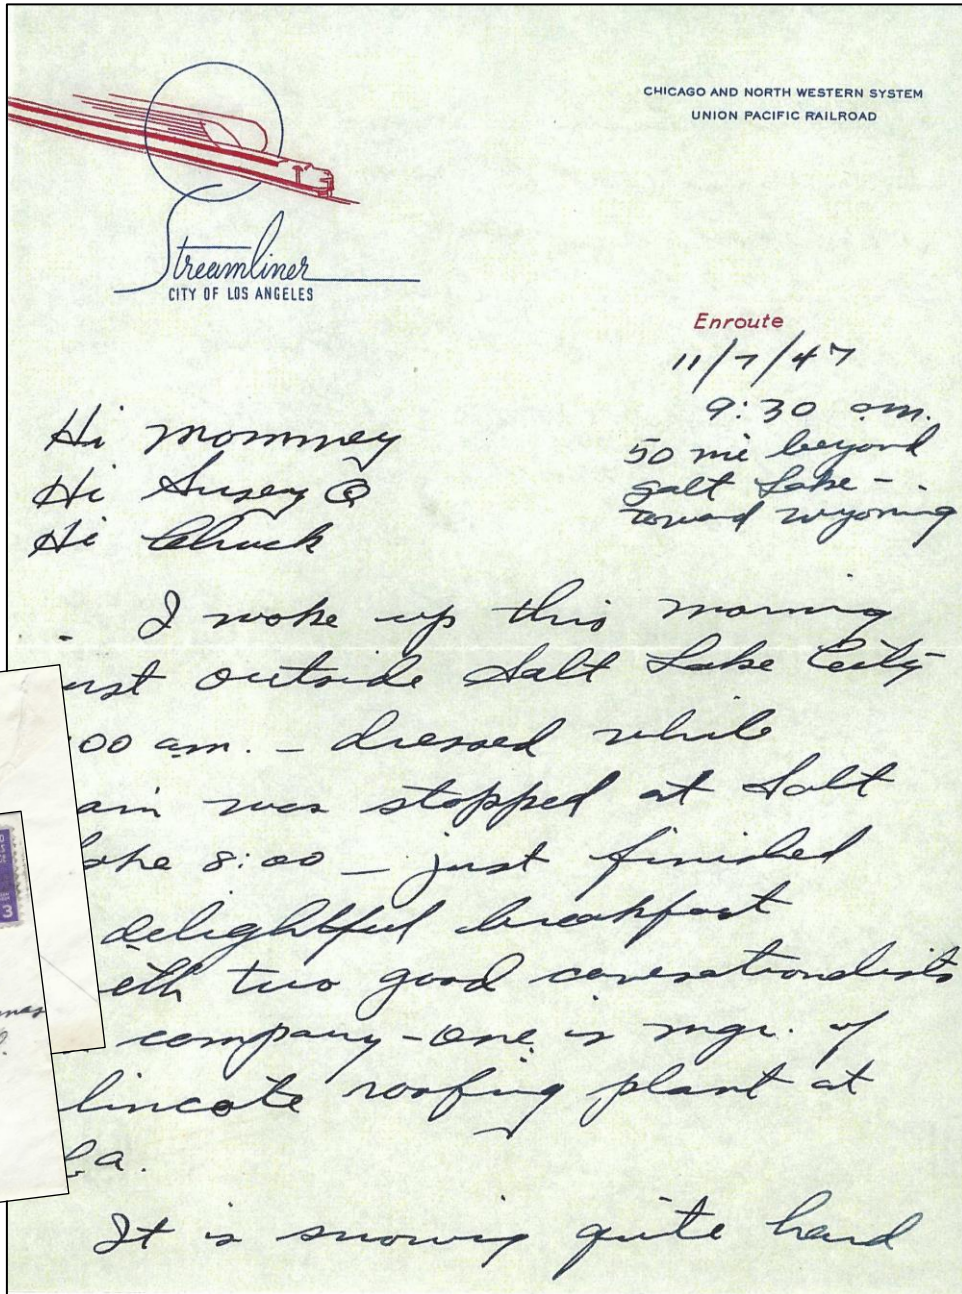 CHICAGO AND NORTH WESTERN SYSTEM
UNION PACIFIC RAILROAD
Streamliner
CITY OF LOS ANGELES
Enroute
11/7/47
9:30 am.
50 mi beyond
Salt Lake -
toward Wyoming
Hi Mommey
Hi Susey Q
Hi Chuck
I woke up this morning
ust outside Salt Lake City
:00 am. - dressed while
ain was stopped at Salt
ake 8:00 - just finished
delightful breakfast
ith two good conversationalists
company - one is mgr. of
lincote roofing plant at
La.
It is snowing quite hard
3
mas